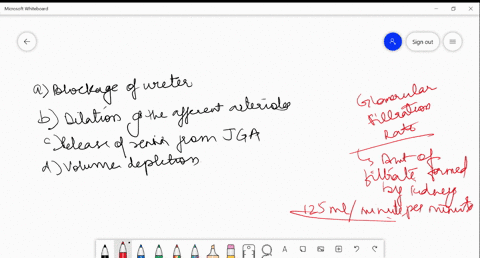 Microsoft Whiteboard
Sign out
a) Blockage of ureter
b) Dilation of the afferent arteriole
c) Release of renin from JGA
d) Volume depletion
Glomerular
filtration
Rate
↳ Amt of
filtrate formed
by kidney
125 ml / minute per minute